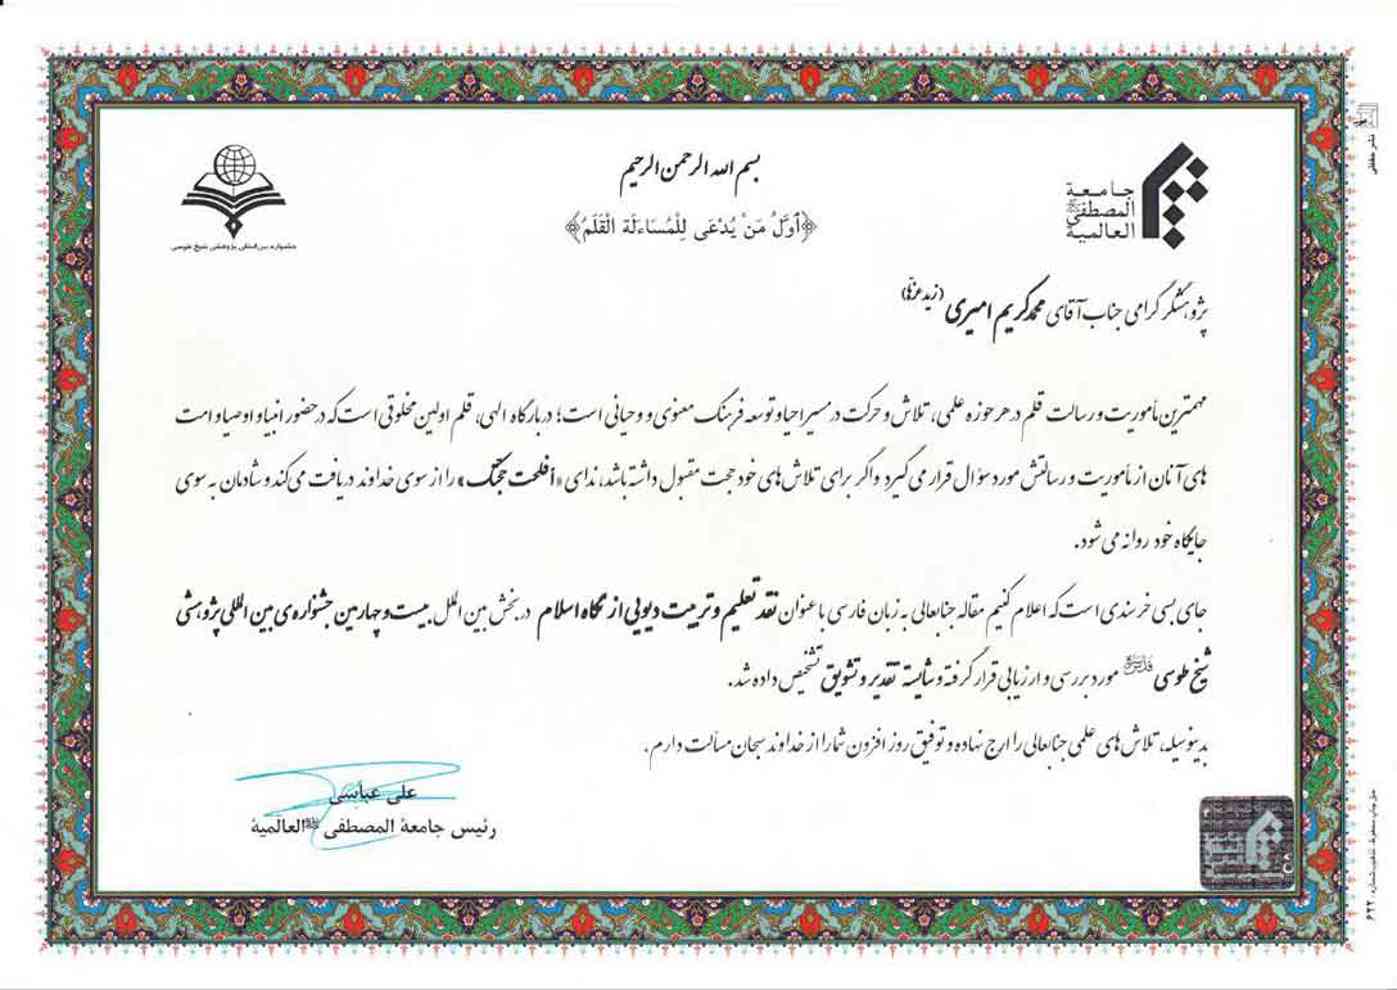 بسم الله الرحمن الرحیم
﴿أَوَّلُ مَنْ يُدْعَى لِلْمُسَاءَلَة الْقَلَمُ﴾
جامعة
المصطفی ﷺ
العالمیة
جشنواره بین‌المللی پژوهشی شیخ طوسی
پژوهشگر گرامی جناب آقای محمدکریم امیری (زید عزّه)
مهمترین مأموریت و رسالت قلم در هر حوزه علمی، تلاش و حرکت در مسیر احیا و توسعه فرهنگ معنوی و وحیانی است؛ در بارگاه الهی، قلم اولین مخلوقی است که در حضور انبیا و اوصیا و امت
های آنان از مأموریت و رسالتش مورد سؤال قرار می گیرد و اگر برای تلاش های خود حجت مقبول داشته باشد، ندای «أفلحت حجتک» را از سوی خداوند دریافت می کند و شادمان به سوی
جایگاه خود روانه می شود.
جای بسی خرسندی است که اعلام کنیم مقاله جنابعالی به زبان فارسی با عنوان نقد تعلیم و تربیت دیویی از نگاه اسلام در بخش بین الملل بیست و چهارمین جشنواره ی بین المللی پژوهشی
شیخ طوسی مورد بررسی و ارزیابی قرار گرفته و شایسته تقدیر و تشویق تشخیص داده شد.
بدینوسیله، تلاش های علمی جنابعالی را ارج نهاده و توفیق روز افزون شما را از خداوند سبحان مسألت دارم.
علی عباسی
رئیس جامعة المصطفی ﷺ العالمیة